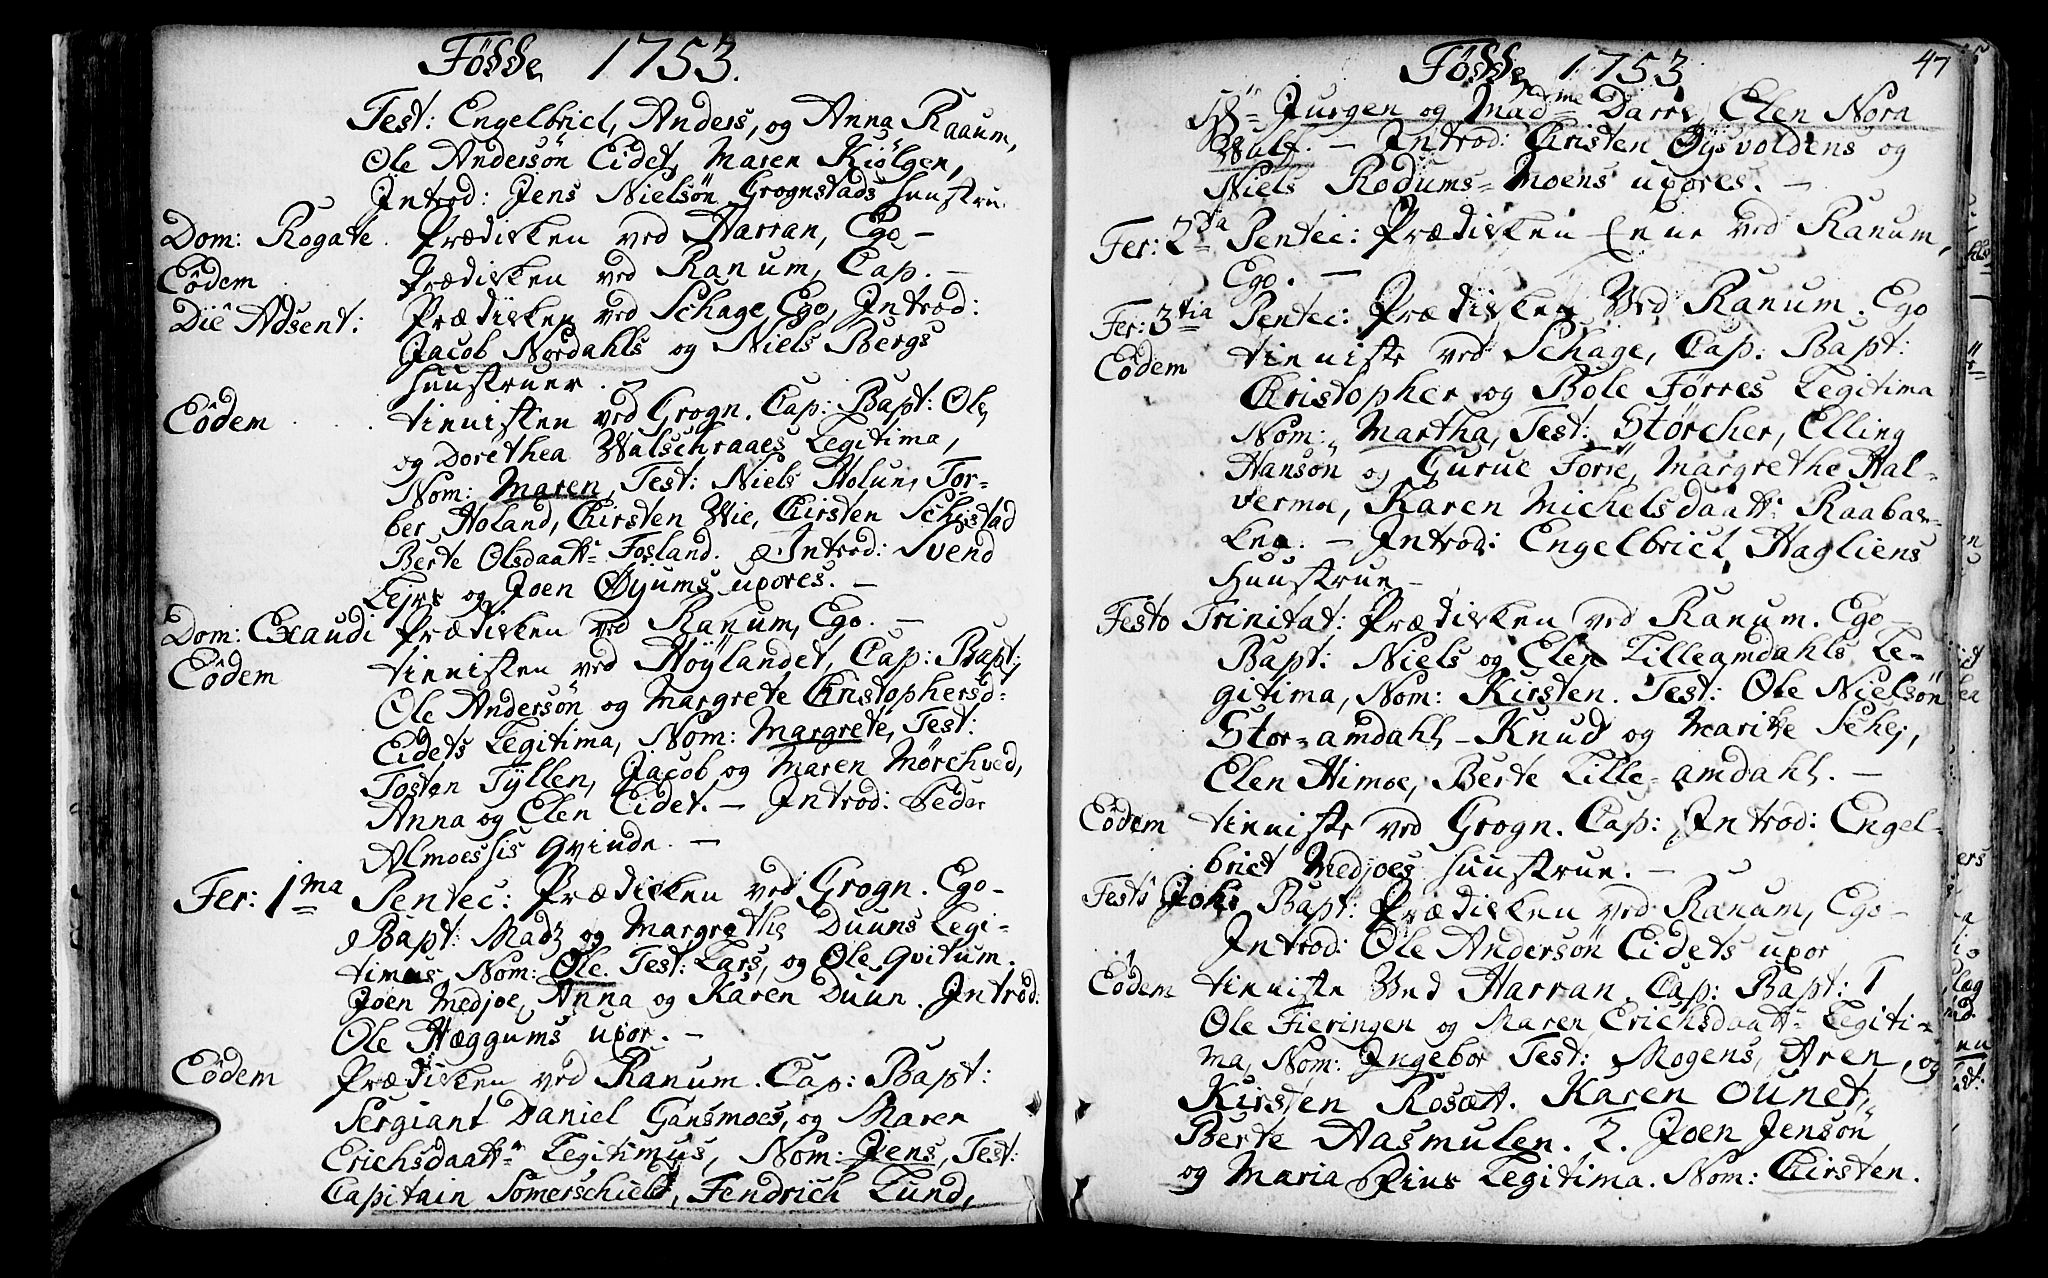 Fødde 1753.
Test: Engelbrict, Anders, og Anna Raaum,
Ole Andersøn Eidet, Maren Kiølgen,
Introd: Jens Nielsøn Grognstads huustru
Dom: Rogate. Prædiken ved Harran, Ego –
Eodem Prædiken ved Ranum, Cap. –
Die Adsent: Prædiken ved Schage, Ego, Introd:
Jacob Nordahls og Niels Bergs
huustruer.
Eodem tienisten ved Grogn. Cap: Bapt: Ole
og Dorethea Walschraaes Legitima,
Nom: Maren, Test: Niels Holun, Tor-
ber Holand, Chirsten Wie, Chirsten
Berte Olsdaatt: Fosland. Introd: Svend
Lejrs og Joen Øyums uxores. –
Dom: Exaudi Prædiken ved Ranum, Ego. –
Eodem tienisten ved Høylandet, Cap: Bapt:
Ole Andersøn og Margrete Christophersd:
Eidets Legitima, Nom: Margrete, Test:
Tosten Tyllen, Jacob og Maren Mørchved,
Anna og Elen Eidet. – Introd: Peder
Almoessis Qvinde. –
Fer: 1ma Pentec: Prædiken ved Grogn. Ego –
Bapt: Madz og Margrethe Duuns Legi-
timus, Nom: Ole. Test: Lars, og Ole Qvitum.
Joen Medjoe, Anna og Karen Duun. Introd:
Ole Hæggums uxor. –
Eodem Prædiken ved Ranum. Cap: Bapt:
Sergiant Daniel Gansmoes, og Maren
Erichsdaatt: Legitimus, Nom: Jens, Test:
Capitain Somerschield, Fendrich Lund,
Fødde 1753
47
Jurgen og Madme Darre, Elen Nora
Wulf. – Introd: Christen Øysvoldens og
Niels Rodums-Moens uxores. –
Fer: 2da Pentec: Prædiken ved Ranum,
Ego. –
Fer: 3tia Pentec: Prædiken Ved Ranum. Ego
Eodem tieniste ved Schage, Cap: Bapt:
Christopher og Bole Førres Legitima
Nom: Martha, Test: Størcher, Elling
Hansøn og Gurue Forie, Margrethe Hal-
vermoe, Karen Michelsdaatt: Raabak-
ken. – Introd: Engelbrict Hagliens
Huustrue –
Festo Trinitat: Prædiken ved Ranum. Ego –
Bapt: Niels og Elen Lilleamdahls Le-
gitima, Nom: Kirsten. Test: Ole Nielsøn
Stor-amdahl – Knud og Marite Schej,
Elen Himoe, Berte Lille-amdahl. –
Eodem tieniste ved Grogn. Cap: Introd: Engel-
brict Medjoes huustrue. –
Festo Johs Bapt: Prædiken ved Ranum, Ego –
Introd: Ole Andersøn Eidets uxor
Eodem tieniste Ved Harran, Cap: Bapt: 1
Ole Fieringen og Maren Erichsdaatt: Legiti-
ma, Nom: Ingebor Test: Mogens, Aren, og
Kirsten Rosætt. Karen Ounet,
Berte Aasmulen. 2. Joen Jensøn
og Maria Legitima. Nom: Chirsten.